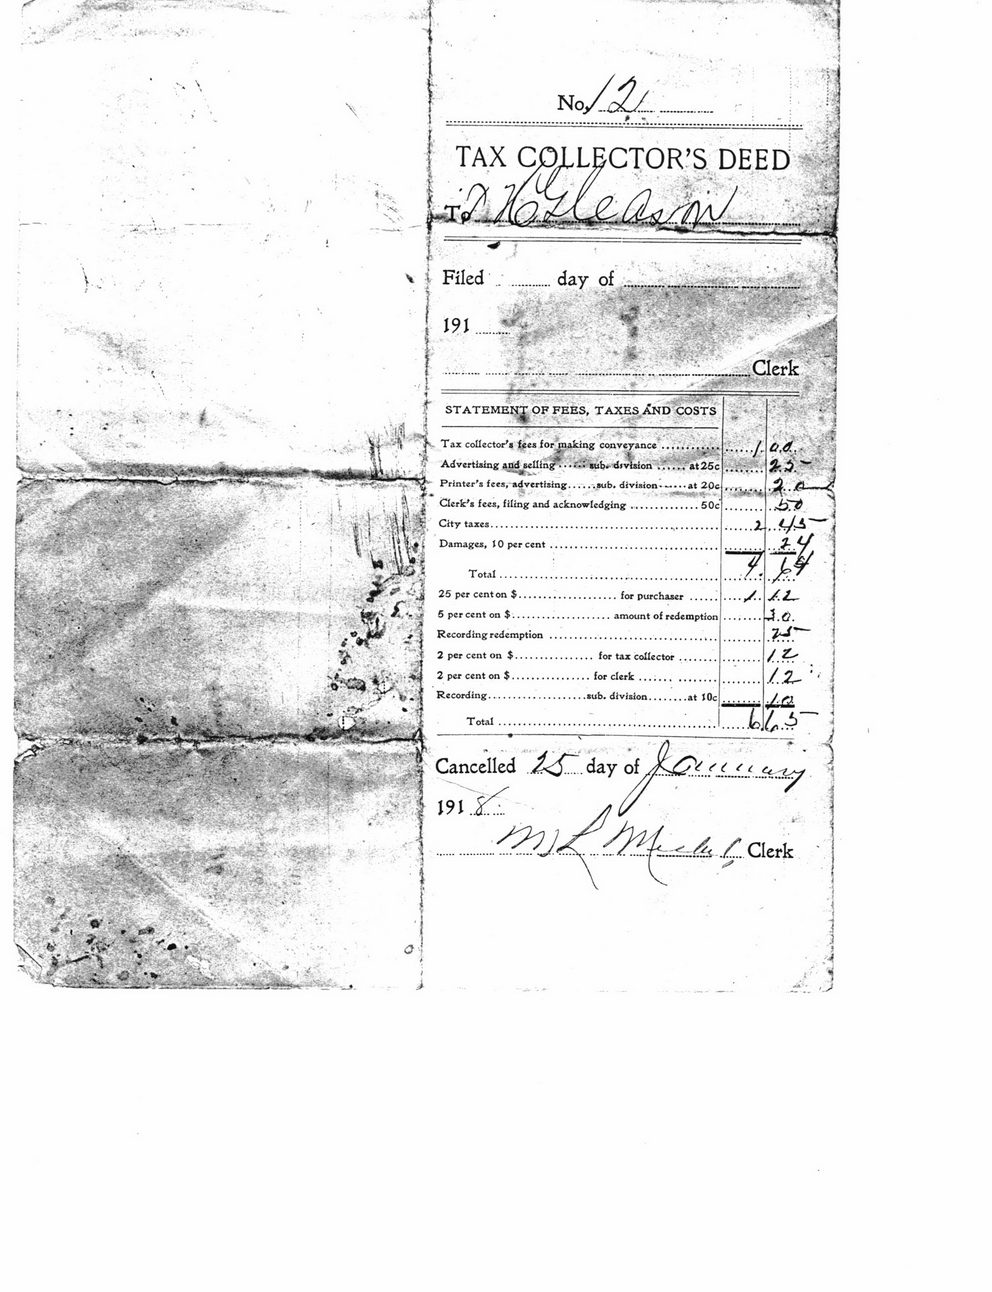 No. 12
TAX COLLECTOR'S DEED
To H Gleason
Filed day of
191
Clerk
STATEMENT OF FEES, TAXES AND COSTS
Tax collector's fees for making conveyance 1 00
Advertising and selling sub. division at 25c 25
Printer's fees, advertising sub. division at 20c 20
Clerk's fees, filing and acknowledging 50c 50
City taxes 2 45
Damages, 10 per cent 24
Total 4 64
25 per cent on $ for purchaser 1 12
5 per cent on $ amount of redemption 30
Recording redemption 25
2 per cent on $ for tax collector 12
2 per cent on $ for clerk 12
Recording sub. division at 10c 10
Total 6 65
Cancelled 25 day of January
1918
M L Clerk